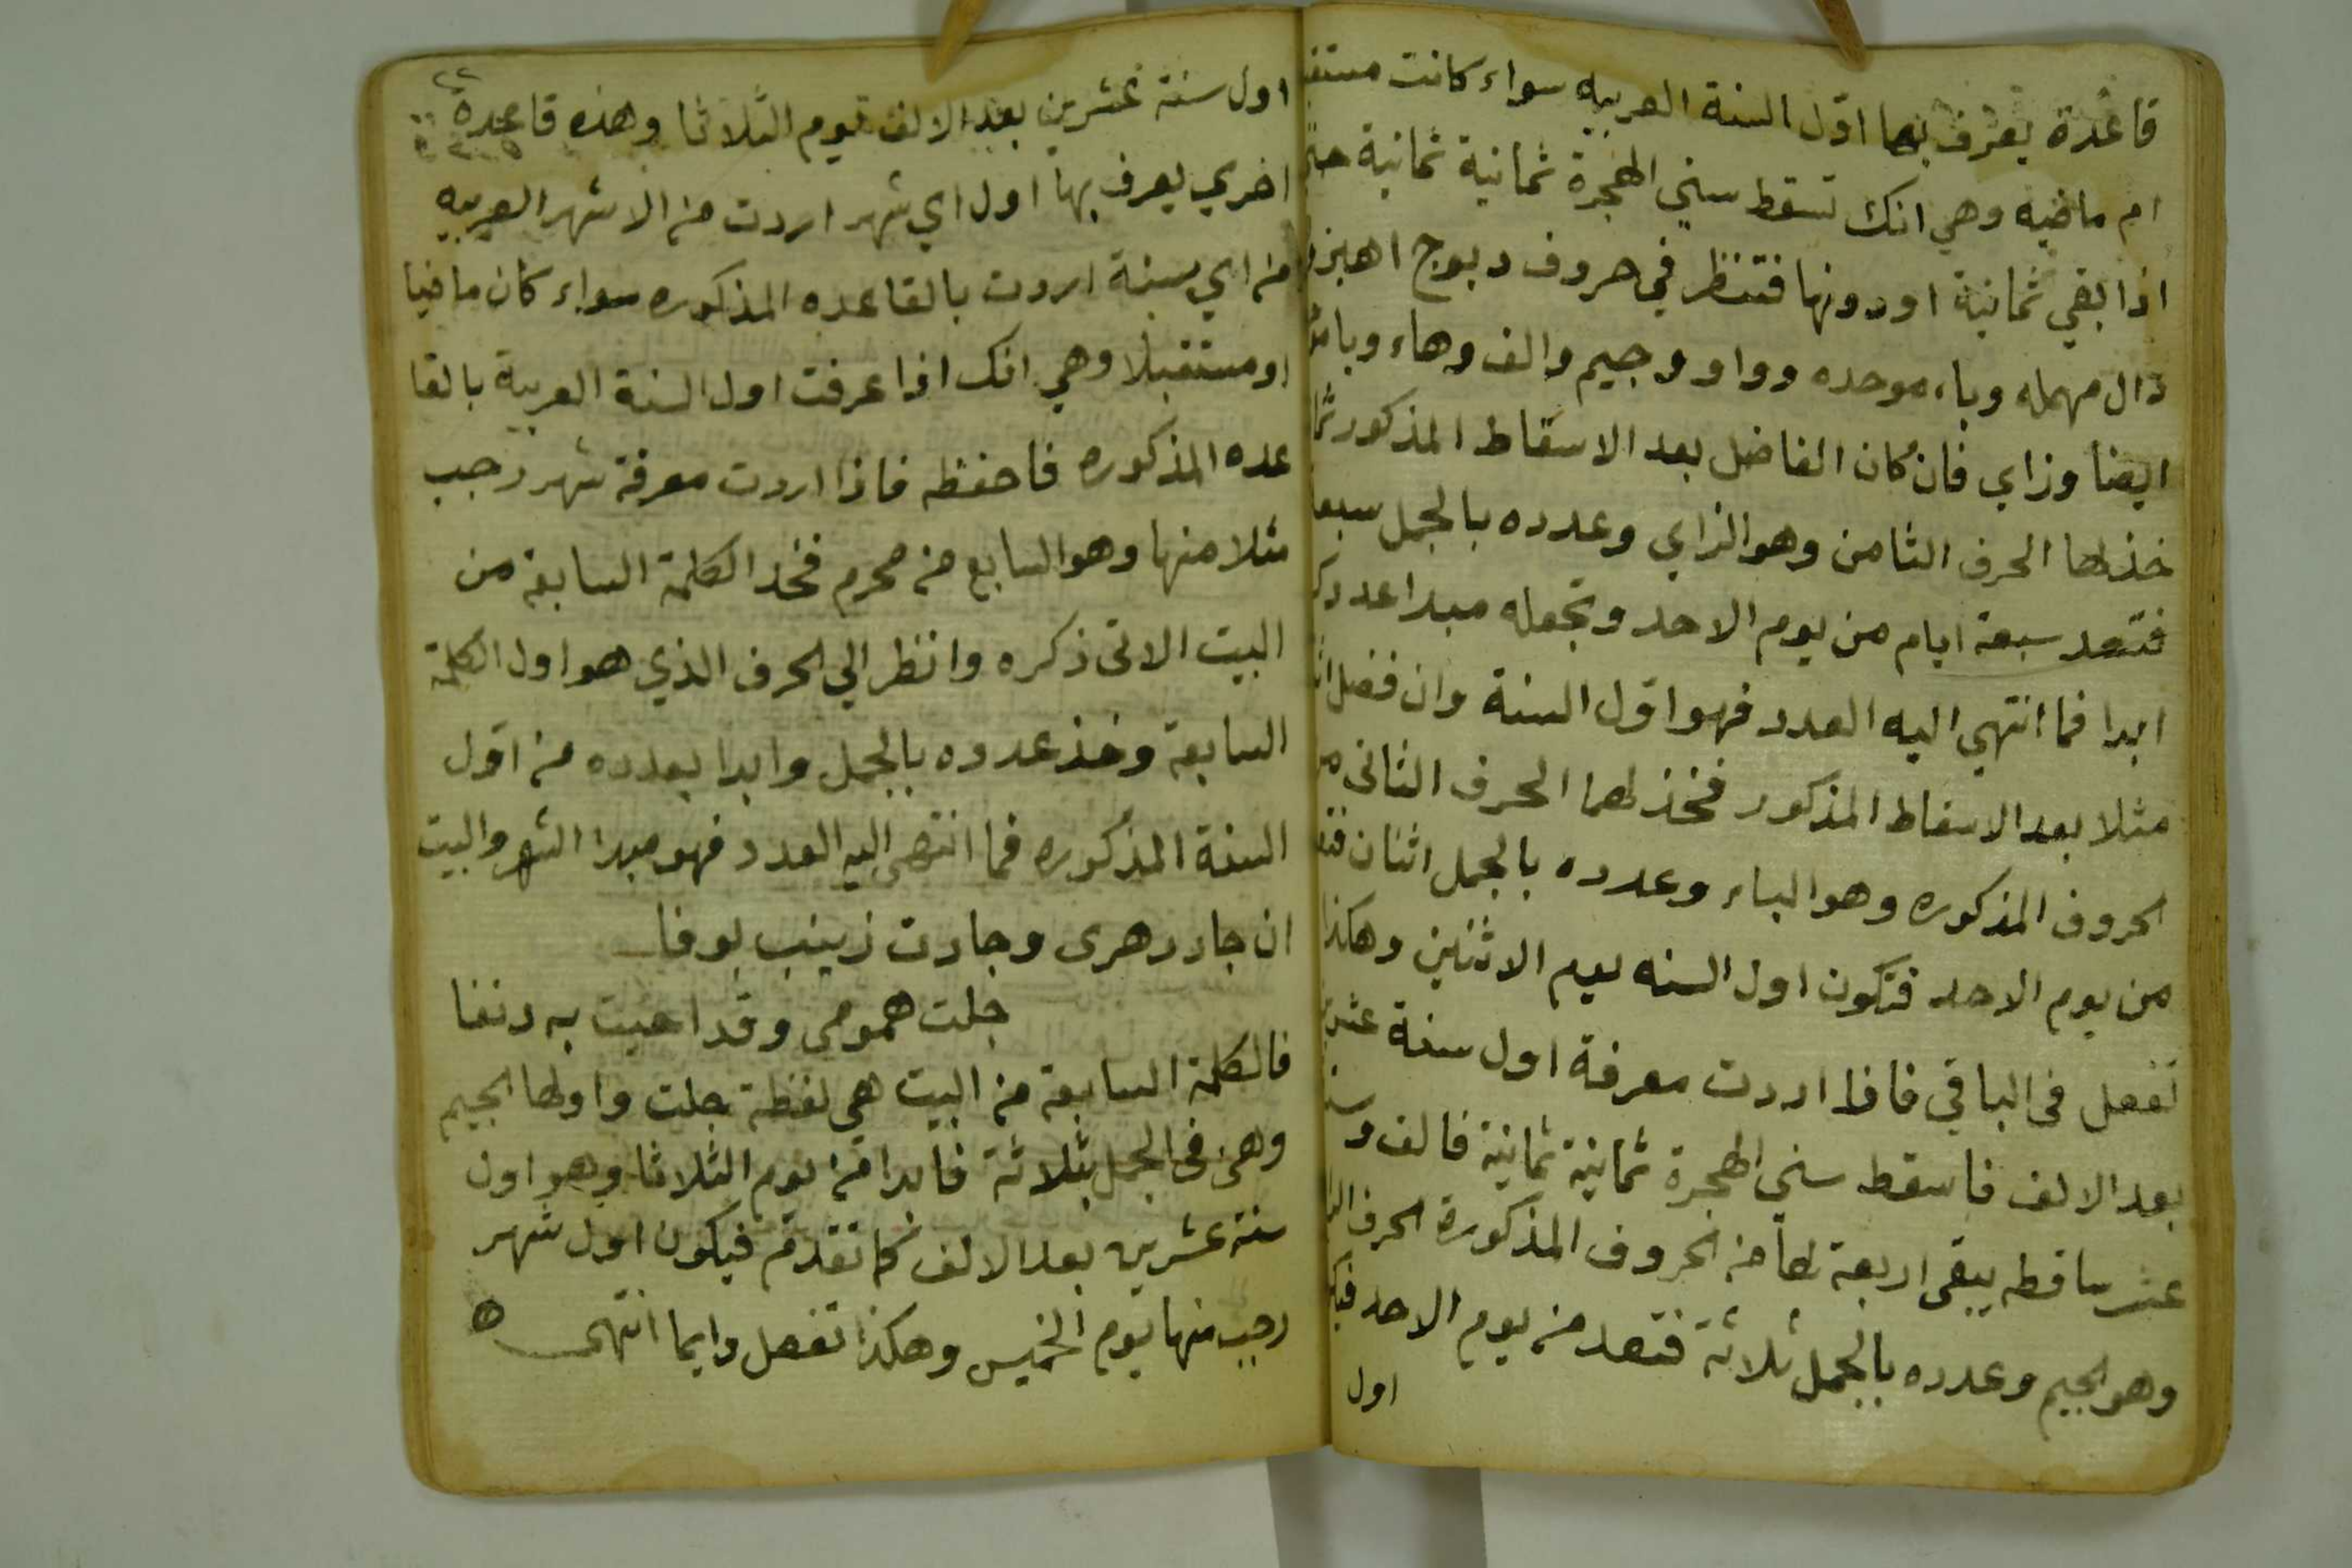 قاعدة يعرف بها اول السنة العربيه سواء كانت
ام ماضيه وهي انك تسقط سني الهجرة ثمانية ثمانية
اذا بقي ثمانية او دونها فتنظر في حروف دبوج اهبز
دال مهمله وباء موحده وواو وجيم والف وهاء وباء
ايضا وزاي فان كان الفاضل بعد الاسقاط المذكور
خذ لها الحرف الثامن وهو الزاي وعدده بالجمل سبعة
فتعد سبعة ايام من يوم الاحد وتجعله مبدا عددك
ابدا فما انتهي اليه العدد فهو اول السنة وان فضل
مثلا بعد الاسقاط المذكور فخذ لهما الحرف الثاني من
الحروف المذكوره وهو الباء وعدده بالجمل اثنان
من يوم الاحد فتكون اول السنه يوم الاثنين وهكذا
تفعل في الباقي فاذا اردت معرفة اول سنة عشرين
بعد الالف فاسقط سني الهجرة ثمانية ثمانية فالف
عشر ساقطه يبقي اربعة لها من الحروف المذكورة الحرف
وهو الجيم وعدده بالجمل ثلاثة فتعد من يوم الاحد
اول
٢٢
اول سنة عشرين بعد الالف يوم الثلاثا وهذه قاعدة
اخري يعرف بها اول اي شهر اردت من الاشهر العربيه
من اي سنة اردت بالقاعده المذكوره سواء كان ماضيا
او مستقبلا وهي انك اذا عرفت اول السنة العربية بالقا
عده المذكوره فاحفظه فاذا اردت معرفة شهر رجب
مثلا منها وهو السابع من محرم فخذ الكلمة السابعة من
البيت الاتي ذكره وانظر الي الحرف الذي هو اول الكلمة
السابعة وخذ عدده بالجمل وابدا بعدده من اول
السنة المذكوره فما انتهي اليه العدد فهو مبدا الشهر والبيت
ان جاد دهري وجادت زينب بوفا
جلت همومي وقد احيت به دنفا
فالكلمة السابعة من البيت هي لفظة جلت واولها الجيم
وهي في الجمل بثلاثة فابدا من يوم الثلاثا وهو اول
سنة عشرين بعد الالف كما تقدم فيكون اول شهر
رجب منها يوم الخميس وهكذا تفعل دايما انتهي